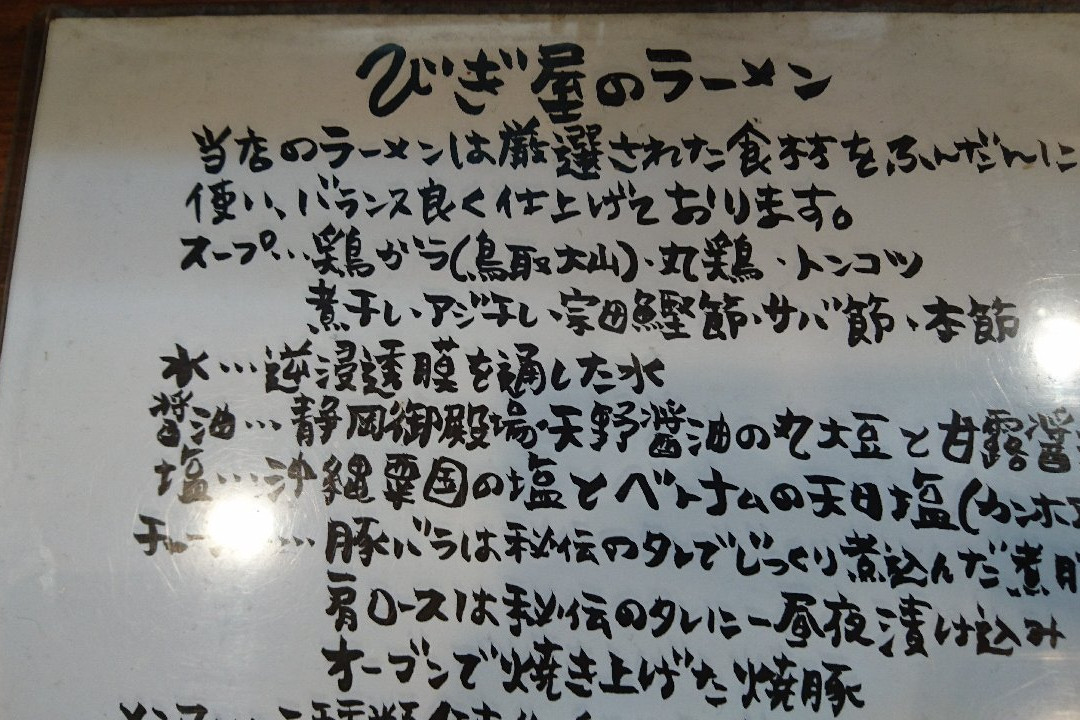 びぎ屋のラーメン
当店のラーメンは厳選された食材をふんだんに
使い、バランス良く仕上げております。
スープ…鶏がら(鳥取大山)・丸鶏・トンコツ
煮干し・アジ干し・宗田鰹節・サバ節・本節
水…逆浸透膜を通した水
醤油…静岡御殿場・天野醤油の丸大豆と甘露醤
塩…沖縄粟国の塩とベトナムの天日塩(カンホア
豚バラは秘伝のタレでじっくり煮込んだ煮豚
肩ロースは秘伝のタレに一昼夜漬け込み
オーブンで焼き上げた焼豚